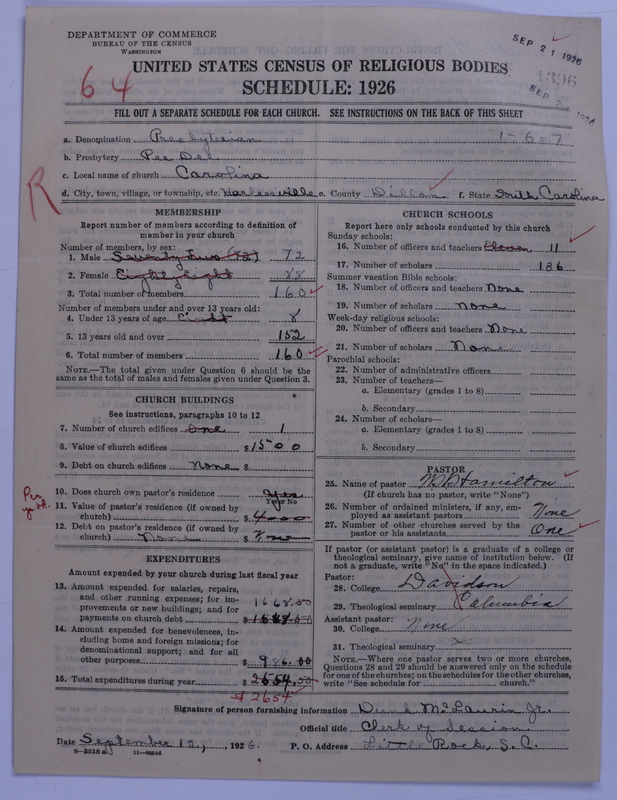 DEPARTMENT OF COMMERCE
BUREAU OF THE CENSUS
WASHINGTON
SEP 21 1926
1396
64
UNITED STATES CENSUS OF RELIGIOUS BODIES
SCHEDULE: 1926
FILL OUT A SEPARATE SCHEDULE FOR EACH CHURCH. SEE INSTRUCTIONS ON THE BACK OF THIS SHEET
a. Denomination Presbyterian 1-6-7
b. Presbytery Pee Dee
c. Local name of church Carolina
R
d. City, town, village, or township, etc. Harleesville e. County Dillon f. State South Carolina
MEMBERSHIP
Report number of members according to definition of
member in your church
Number of members, by sex:
1. Male Seventy Two (72) 72
2. Female Eighty Eight 88
3. Total number of members 160
Number of members under and over 13 years old:
4. Under 13 years of age Eight 8
5. 13 years old and over 152
6. Total number of members 160
NOTE.—The total given under Question 6 should be the
same as the total of males and females given under Question 3.
CHURCH BUILDINGS
See instructions, paragraphs 10 to 12
7. Number of church edifices One 1
8. Value of church edifices $1500
9. Debt on church edifices None $
10. Does church own pastor's residence Yes
Yes or No
11. Value of pastor's residence (if owned by
church) $4000
12. Debt on pastor's residence (if owned by
church) None $
EXPENDITURES
Amount expended by your church during last fiscal year
13. Amount expended for salaries, repairs,
and other running expenses; for im-
provements or new buildings; and for
payments on church debt $ 1668.00
14. Amount expended for benevolences, in-
cluding home and foreign missions; for
denominational support; and for all
other purposes $ 986.00
15. Total expenditures during year $2654.00
$2654
CHURCH SCHOOLS
Report here only schools conducted by this church
Sunday schools:
16. Number of officers and teachers Eleven 11
17. Number of scholars 136
Summer vacation Bible schools:
18. Number of officers and teachers None
19. Number of scholars None
Week-day religious schools:
20. Number of officers and teachers None
21. Number of scholars None
Parochial schools:
22. Number of administrative officers
23. Number of teachers—
a. Elementary (grades 1 to 8)
b. Secondary
24. Number of scholars—
a. Elementary (grades 1 to 8)
b. Secondary
PASTOR
25. Name of pastor Hamilton
(If church has no pastor, write "None")
26. Number of ordained ministers, if any, em-
ployed as assistant pastors None
27. Number of other churches served by the
pastor or his assistants One
If pastor (or assistant pastor) is a graduate of a college or
theological seminary, give name of institution below. (If
not a graduate, write "No" in the space indicated.)
Pastor:
28. College Davidson
29. Theological seminary Columbia
Assistant pastor:
30. College None
31. Theological seminary
NOTE.—Where one pastor serves two or more churches,
Questions 28 and 29 should be answered only on the schedule
for one of the churches; on the schedules for the other churches,
write "See schedule for church."
Signature of person furnishing information Dunk McLaurin Jr.
Official title Clerk of Session
Date September 12, 1926. P. O. Address Little Rock, S. C.
8-5518a 11-9564d